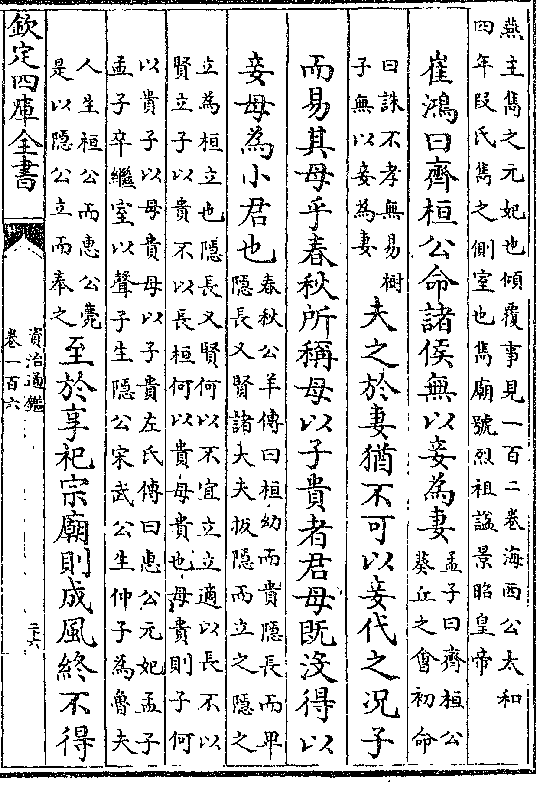 燕主雋之元妃也傾覆事見一百二卷海西公太和
四年段氏雋之側室也雋廟號烈祖諡景昭皇帝
崔鴻曰齊桓公命諸侯無以妾為妻
孟子曰齊桓公
葵丘之會初命
曰誅不孝無易樹
子無以妾為妻
夫之於妻猶不可以妾代之況子
而易其母乎春秋所稱母以子貴者君母既沒得以
妾母為小君也
春秋公羊傳曰桓幼而貴隱長而卑
隱長又賢諸大夫扳隱而立之隱之
立為桓立也隱長又賢何以不宜立立適以長不以
賢立子以貴不以長桓何以貴母貴也母貴則子何
以貴子以母貴母以子貴左氏傳曰惠公元妃孟子
孟子卒繼室以聲子生隱公宋武公生仲子為魯夫
人生桓公而惠公薨
是以隱公立而奉之
至於享祀宗廟則成風終不得
欽定四庫全書
資治通鑑
卷一百六
二六